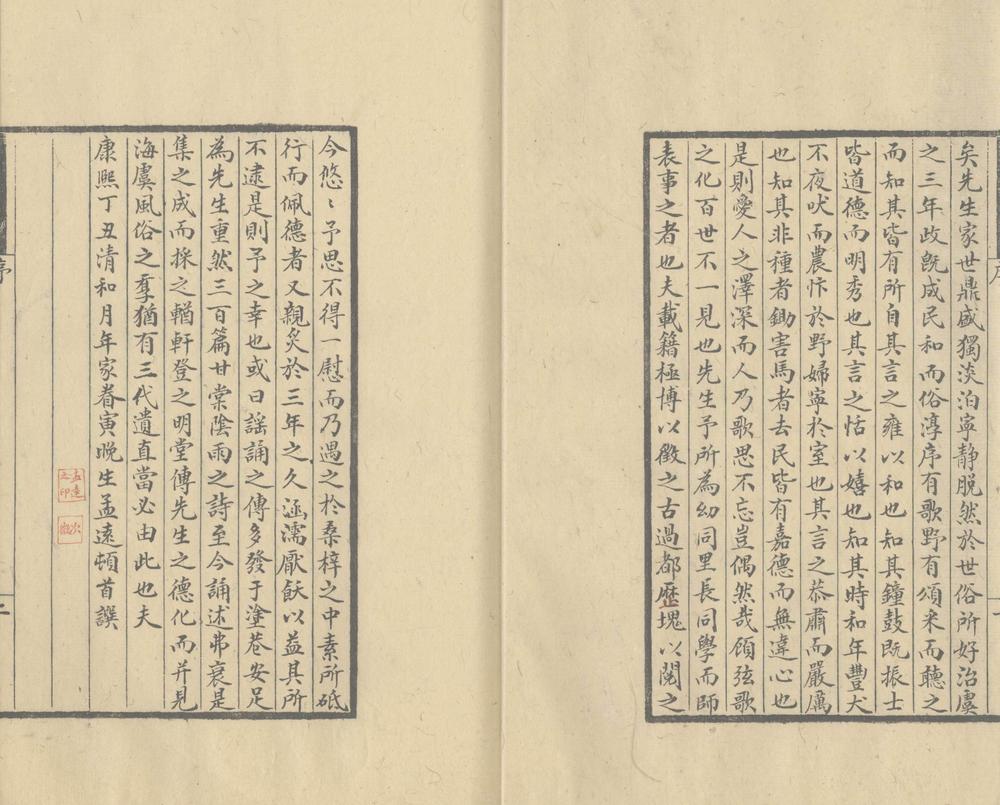 矣先生家世鼎盛獨淡泊寧静脱然於世俗所好治虞
之三年政旣成民和而俗淳序有歌野有頌采而聽之
而知其皆有所自其言之雍以和也知其鐘鼓既振士
皆道德而明秀也其言之恬以嬉也知其時和年豐犬
不夜吠而農忭於野婦寧於室也其言之恭肅而嚴厲
也知其非種者鋤害馬者去民皆有嘉德而無違心也
是則愛人之澤深而人乃歌思不忘豈偶然哉頋弦歌
之化百世不一見也先生予所為幼同里長同學而師
表事之者也夫載籍極博以徵之古過都歷塊以閱之
今悠〻予思不得一慰而乃遇之於桑梓之中素所砥
行而佩德者又親炙於三年之久涵濡厭飫以益其所
不逮是則予之幸也或曰謡誦之傳多發于塗巷安足
為先生重然三百篇甘棠陰雨之詩至今誦述弗衰是
集之成而採之輶軒登之明堂傳先生之德化而并見
海虞風俗之羣猶有三代遺直當必由此也夫
康熈丁丑清和月年家眷寅晚生孟遠頓首譔
孟遠之印
序
二